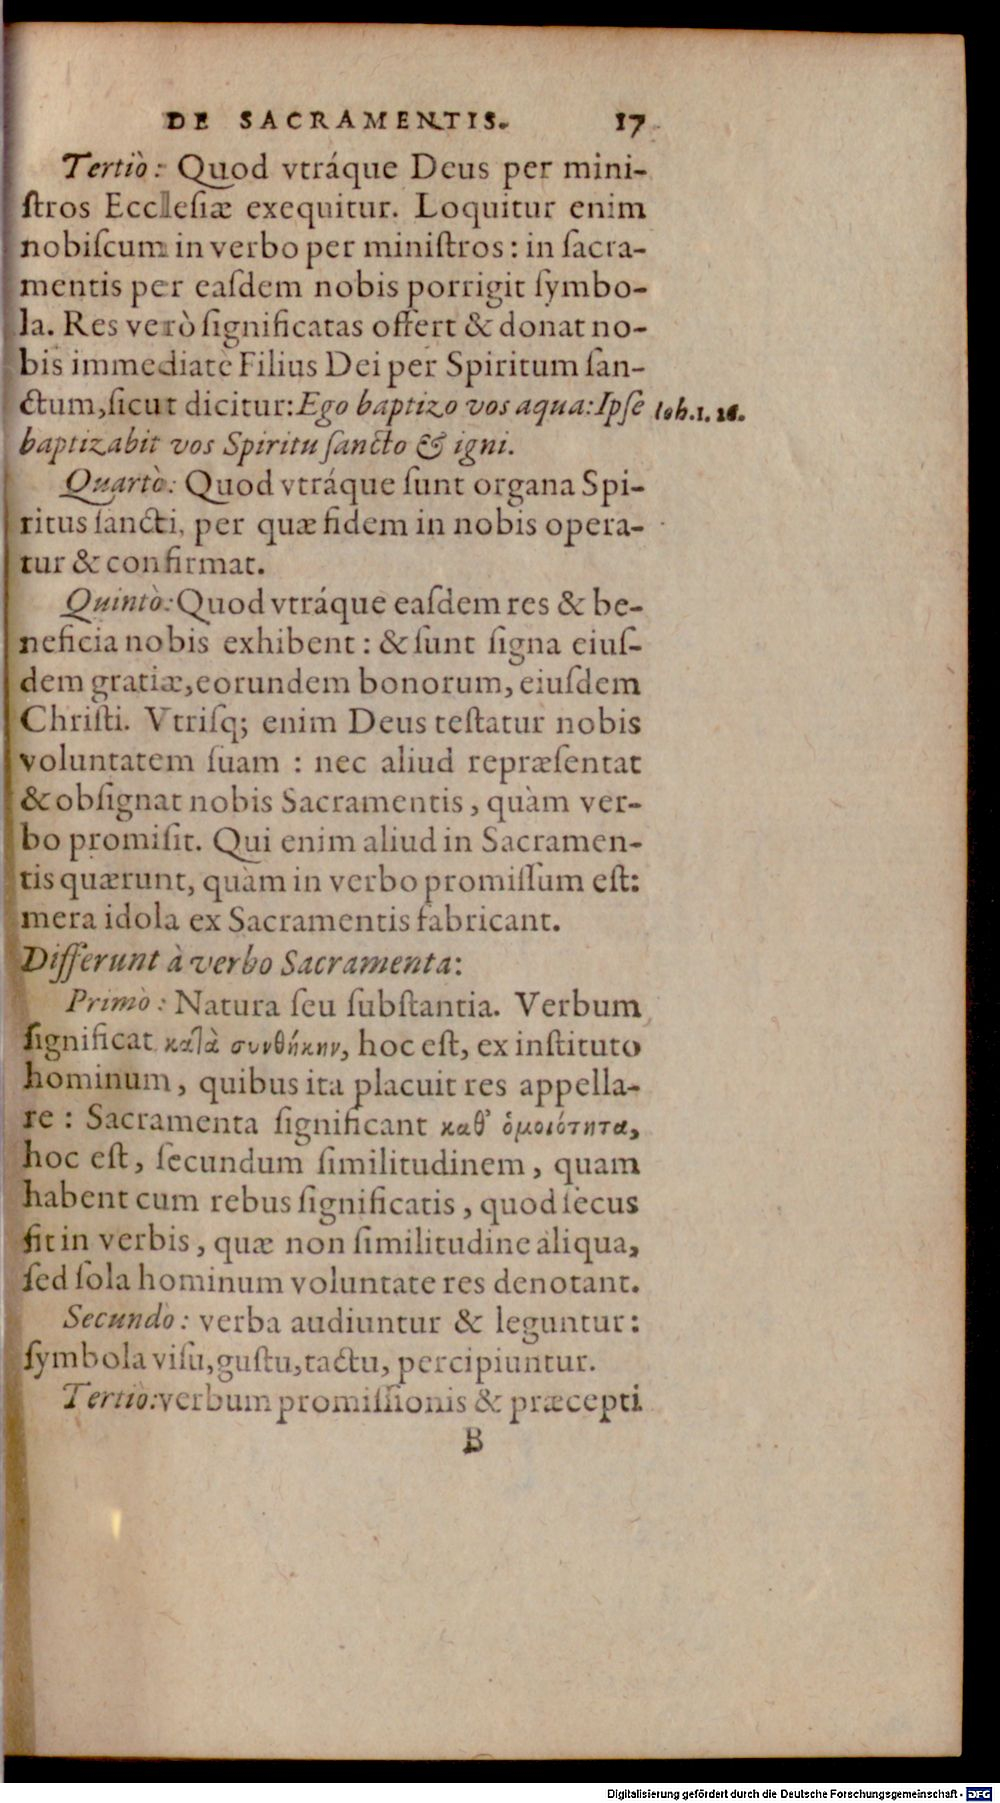 DE SACRAMENTIS. 17
Tertiò: Quod vtráque Deus per mini-
ſtros Eccleſiæ exequitur. Loquitur enim
nobiſcum in verbo per miniſtros: in ſacra-
mentis per eaſdem nobis porrigit ſymbo-
la. Res verò ſignificatas offert & donat no-
bis immediatè Filius Dei per Spiritum ſan-
ctum, ſicut dicitur: Ego baptizo vos aqua: Ipſe
Ioh. 1. 26.
baptizabit vos Spiritu ſancto & igni.
Quartò: Quod vtráque ſunt organa Spi-
ritus ſancti, per quæ fidem in nobis opera-
tur & confirmat.
Quintò: Quod vtráque eaſdem res & be-
neficia nobis exhibent: & ſunt ſigna eiuſ-
dem gratiæ, eorundem bonorum, eiuſdem
Chriſti. Vtriſq; enim Deus teſtatur nobis
voluntatem ſuam: nec aliud repræſentat
& obſignat nobis Sacramentis, quàm ver-
bo promiſit. Qui enim aliud in Sacramen-
tis quærunt, quàm in verbo promiſſum eſt:
mera idola ex Sacramentis fabricant.
Differunt à verbo Sacramenta:
Primò: Natura ſeu ſubſtantia. Verbum
ſignificat κατὰ συνθήκην, hoc eſt, ex inſtituto
hominum, quibus ita placuit res appella-
re: Sacramenta ſignificant καθ' ὁμοιότητα,
hoc eſt, ſecundum ſimilitudinem, quam
habent cum rebus ſignificatis, quod ſecus
fit in verbis, quæ non ſimilitudine aliqua,
ſed ſola hominum voluntate res denotant.
Secundò: verba audiuntur & leguntur:
ſymbola viſu, guſtu, tactu, percipiuntur.
Tertiò: verbum promiſſionis & præcepti
B
Digitalisierung gefördert durch die Deutsche Forschungsgemeinschaft - DFG